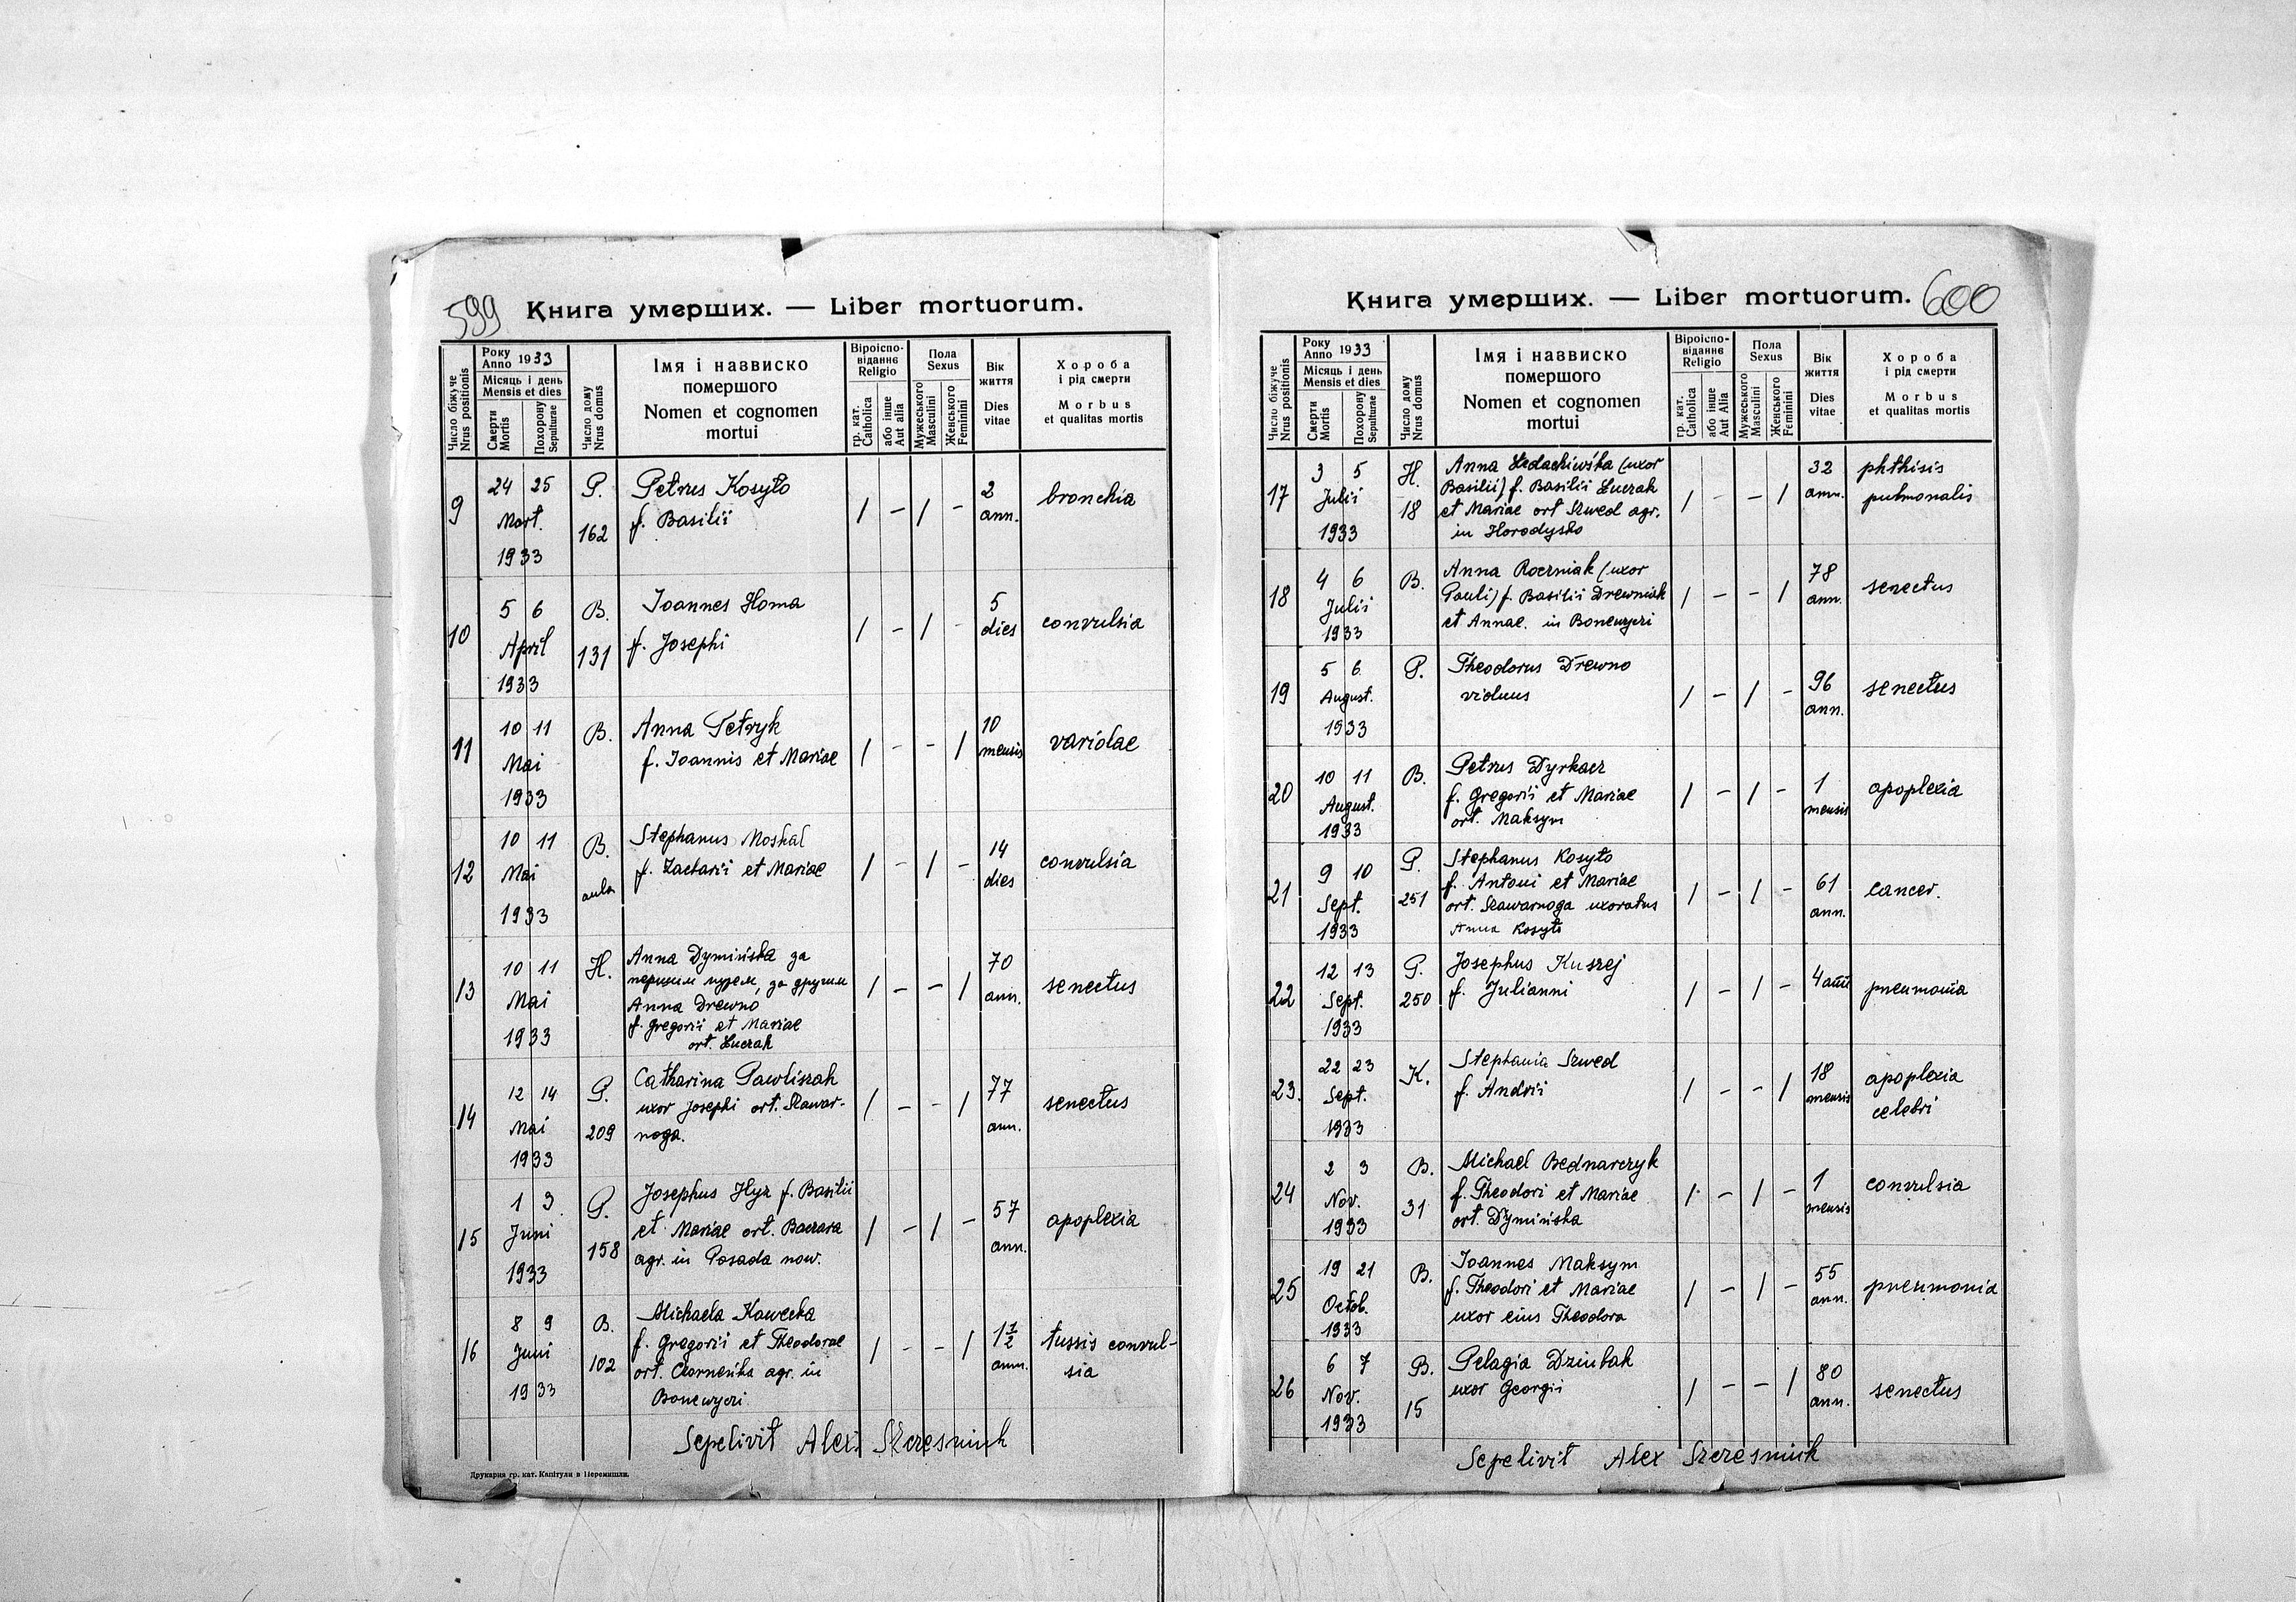 599
Книга умерших. — Liber mortuorum.
Число біжуче
Nrus positionis
Року
Anno 1933
Місяць і день
Mensis et dies
Смерти
Mortis
Похорону
Sepulturae
Число дому
Nrus domus
Імя і назвиско
помершого
Nomen et cognomen
mortui
Віроіспо-
віданнє
Religio
гр. кат.
Catholica
або інше
Aut alia
Пола
Sexus
Мужеського
Masculini
Женського
Feminini
Вік
життя
Dies
vitae
Хороба
і рід смерти
Morbus
et qualitas mortis
9
24 25
Mart.
1933
P.
162
Petrus Kosyło
f. Basilii
/ - / -
2
ann.
bronchia
10
5 6
April
1933
B.
131
Joannes Homa
f. Josephi
/ - / -
5
dies
convulsia
11
10 11
Mai
1933
B.
Anna Petryk
f. Joannis et Mariae
/ - - /
10
mensis
variolae
12
10 11
Mai
1933
B.
aula
Stephanus Moskal
f. Zacharii et Mariae
/ - / -
14
dies
convulsia
13
10 11
Mai
1933
H.
Anna Dymińska за
першим мужем, за другим
Anna Drewno
f. Gregorii et Mariae
ort. Łuczak
/ - - /
70
ann.
senectus
14
12 14
Mai
1933
P.
209
Catharina Pawliszak
uxor Josephi ort. Szawar-
noga.
/ - - /
77
ann.
senectus
15
1 3
Juni
1933
P.
158
Josephus Hyz f. Basilii
et Mariae ort. Baczara
agr. in Posada now.
/ - / -
57
ann.
apoplexia
16
8 9
Juni
1933
B.
102
Michaela Kawecka
f. Gregorii et Theodorae
ort. Czorneńka agr. in
Bonewyczi
/ - - /
1 1/2
ann.
tussis convul-
sia
Sepelivit Alex Szczesniuk
Друкарня гр. кат. Капітули в Перемишли.
Книга умерших. — Liber mortuorum.
600
Число біжуче
Nrus positionis
Року
Anno 1933
Місяць і день
Mensis et dies
Смерти
Mortis
Похорону
Sepulturae
Число дому
Nrus domus
Імя і назвиско
помершого
Nomen et cognomen
mortui
Віроіспо-
віданнє
Religio
гр. кат.
Catholica
або інше
Aut Alia
Пола
Sexus
Мужеського
Masculini
Женського
Feminini
Вік
життя
Dies
vitae
Хороба
і рід смерти
Morbus
et qualitas mortis
17
3 5
Julii
1933
H.
18
Anna (uxor
Basilii) f. Basilii Łuczak
et Mariae ort Szwed agr.
in Horodysko
/ - - /
32
ann.
phthisis
pulmonalis
18
4 6
Julii
1933
B.
Anna Roczniak (uxor
Pauli) f. Basilii Drewniak
et Annae. in Bonewyczi
/ - - /
78
ann.
senectus
19
5 6
August.
1933
P.
Theodorus Drewno
viduus
/ - / -
96
ann.
senectus
20
10 11
August.
1933
B.
Petrus Dyrkacz
f. Gregorii et Mariae
ort. Maksym
/ - / -
1
mensis
apoplexia
21
9 10
Sept.
1933
P.
251
Stephanus Kosyło
f. Antoni et Mariae
ort. Szawarnoga uxoratus
Anna Kosyło
/ - / -
61
ann.
cancer.
22
12 13
Sept.
1933
P.
250
Josephus Kuszej
f. Julianni
/ - / -
4 ann
pneumonia
23.
22 23
Sept.
1933
K.
Stephania Szwed
f. Andrii
/ - - /
18
mensis
apoplexia
celebri
24
2 3
Nov.
1933
B.
31
Michael Bednarczyk
f. Theodori et Mariae
ort. Dymińska
/ - / -
1
mensis
convulsia
25
19 21
Octob.
1933
B.
Joannes Maksym
f. Theodori et Mariae
uxor eius Theodora
/ - / -
55
ann.
pneumonia
26
6 7
Nov.
1933
B.
15
Pelagia Dziubak
uxor Georgii
/ - - /
80
ann.
senectus
Sepelivit Alex Szczesniuk